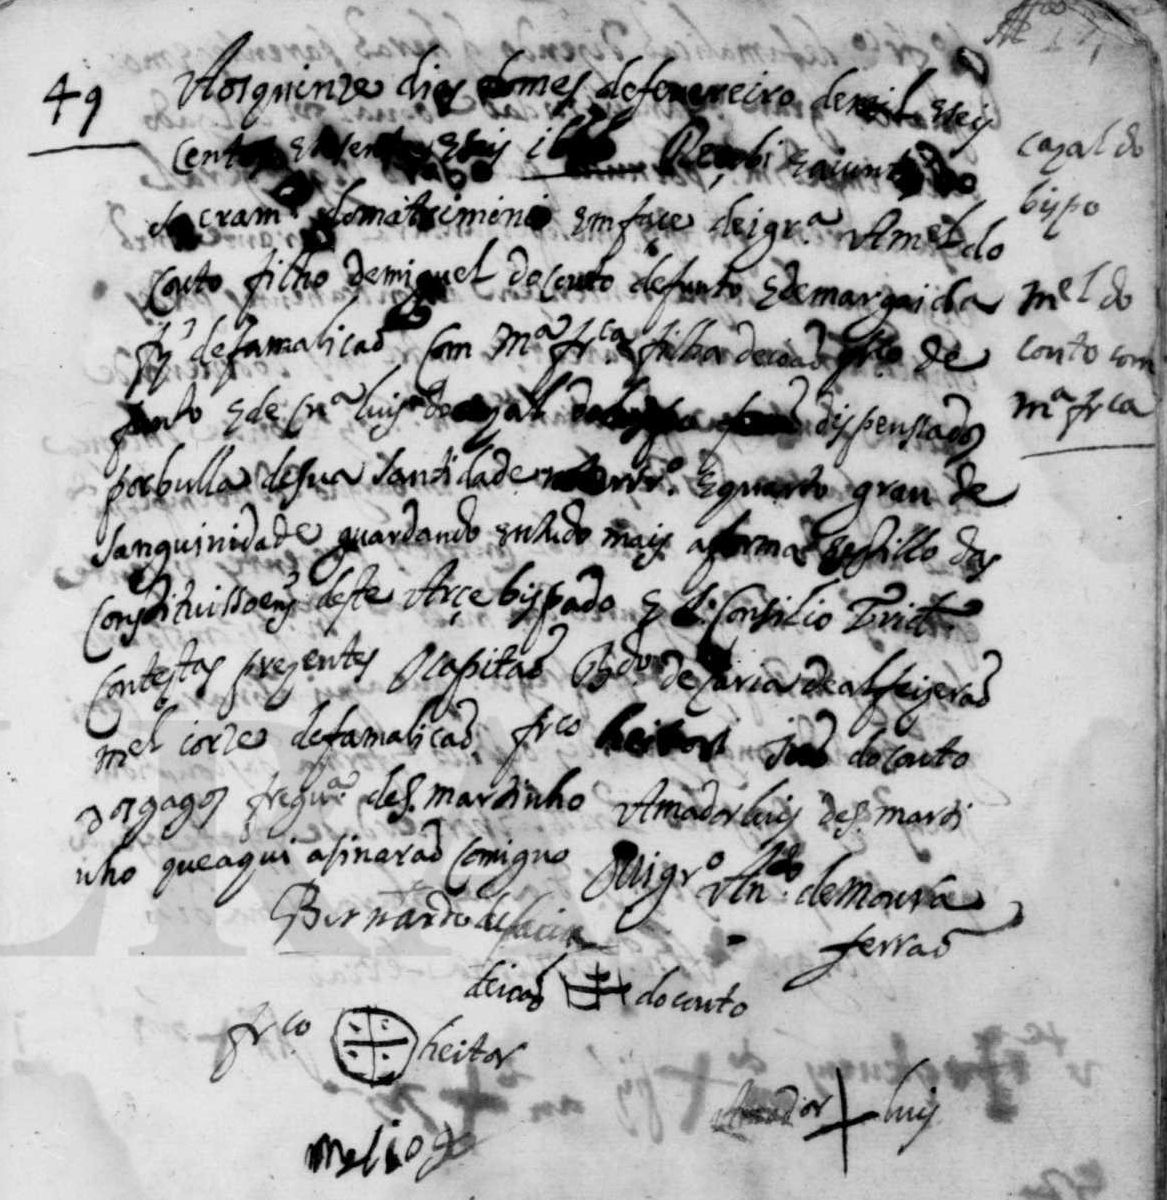 49
Aos quinze dias do mes de fevereiro de mil e seis
centos e e seis Recebi e a iunt
sacram.to do matrimonio em face de igr.a A Mel do
Couto filho de miguel do couto defunto e de margaida
frz de famalicaõ Com M.a fr.ca filha de fr.co de
funto e de Cn.a luis do cazal do bispo dispensados
por bulla de sua santidade e quarto grau de
sanguinidade guardando en tudo mais a forma e estillo das
Constituissoens deste Arcebispado e Consilio Trid.
Contestas prezentes O Capitaõ B.do de faria de alfeijeraõ
Mel iorze de famalicaõ fr.co heitor joaõ do couto
dos gagos fregui.a de S. martinho Amador luis de S. marti
nho que aqui asinaraõ Comiguo O Vigr.o An.to de Moura
ferraõ
Bernardo de faria
de ioaõ do couto
fr.co heitor
Amador luis
Mel iorze
cazal do
bispo
Mel do
couto com
M.a fr.ca